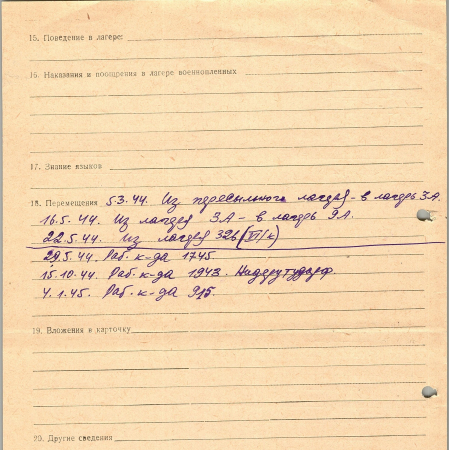 15. Поведение в лагере:
16. Наказания и поощрения в лагере военнопленных
17. Знание языков
18. Перемещения 5.3.44. Из пересыльного лагеря - в лагерь 3А.
16.5.44. Из лагеря 3А - в лагерь 9А.
22.5.44. Из лагеря 326 (VI/к)
29.5.44. Раб. к-да 1745.
15.10.44. Раб. к-да 1943.
4.1.45. Раб. к-да 915.
19. Вложения в карточку
20. Другие сведения